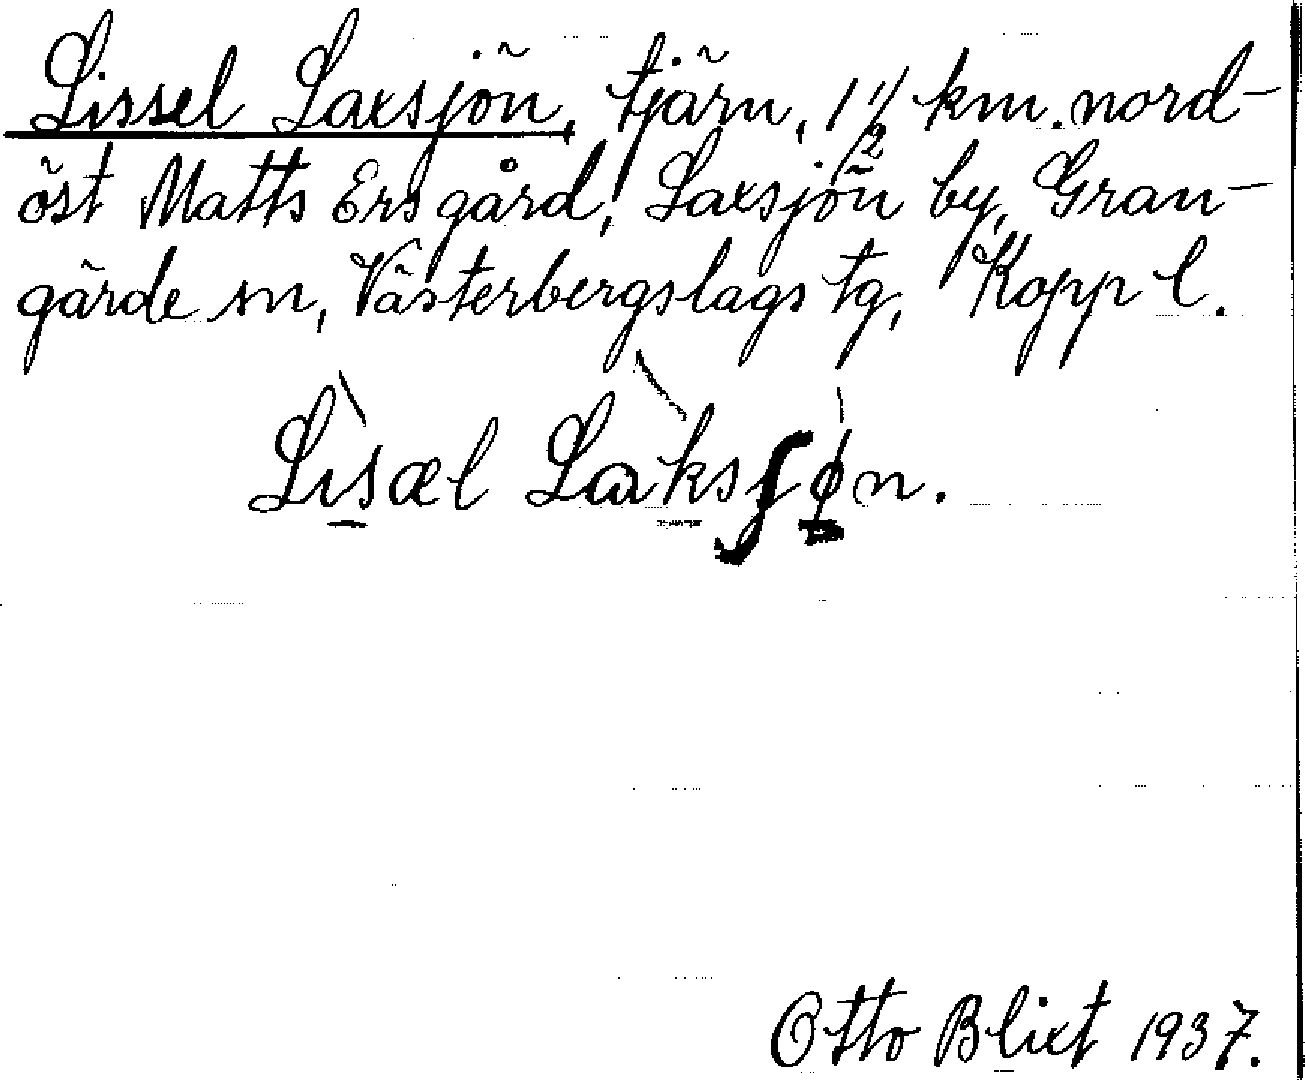 Lissel Laxsjön, tjärn, 1 1/2 km. nord-
öst Matts Ersgård, Laxsjön by, Gran-
gärde sn, Västerbergslags tg, Kopp l.
Lìsæl Làksʃøn.
Otto Blixt 1937.